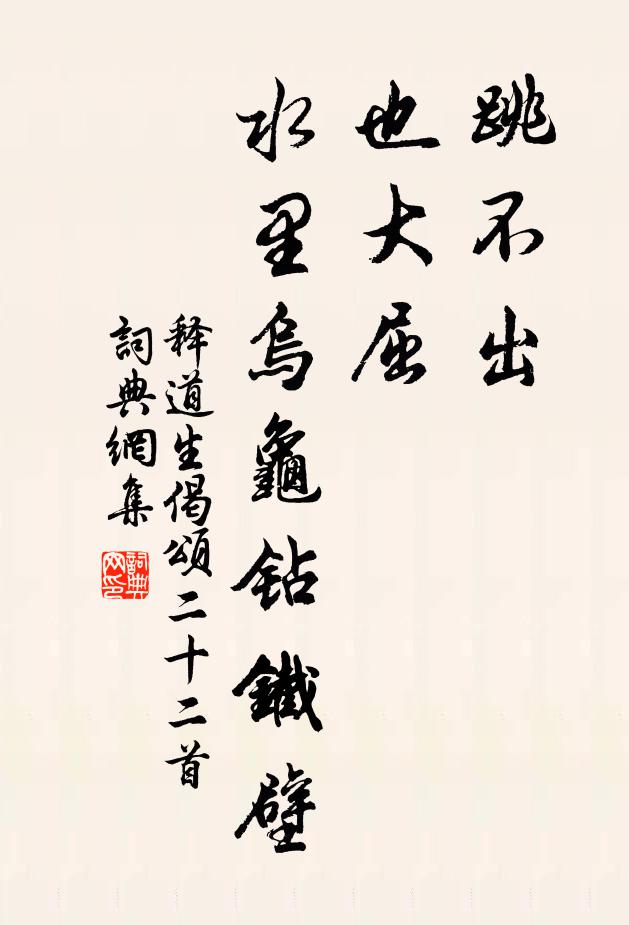 跳不出
也大屈
水里烏龜钻鐵壁
释道生偈頌二十二首
詞典網集
詞典网印